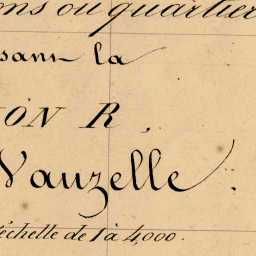 ons ou quartier
sans la
ON R,
Vauzelle.
échelle de 1 à 4,000.